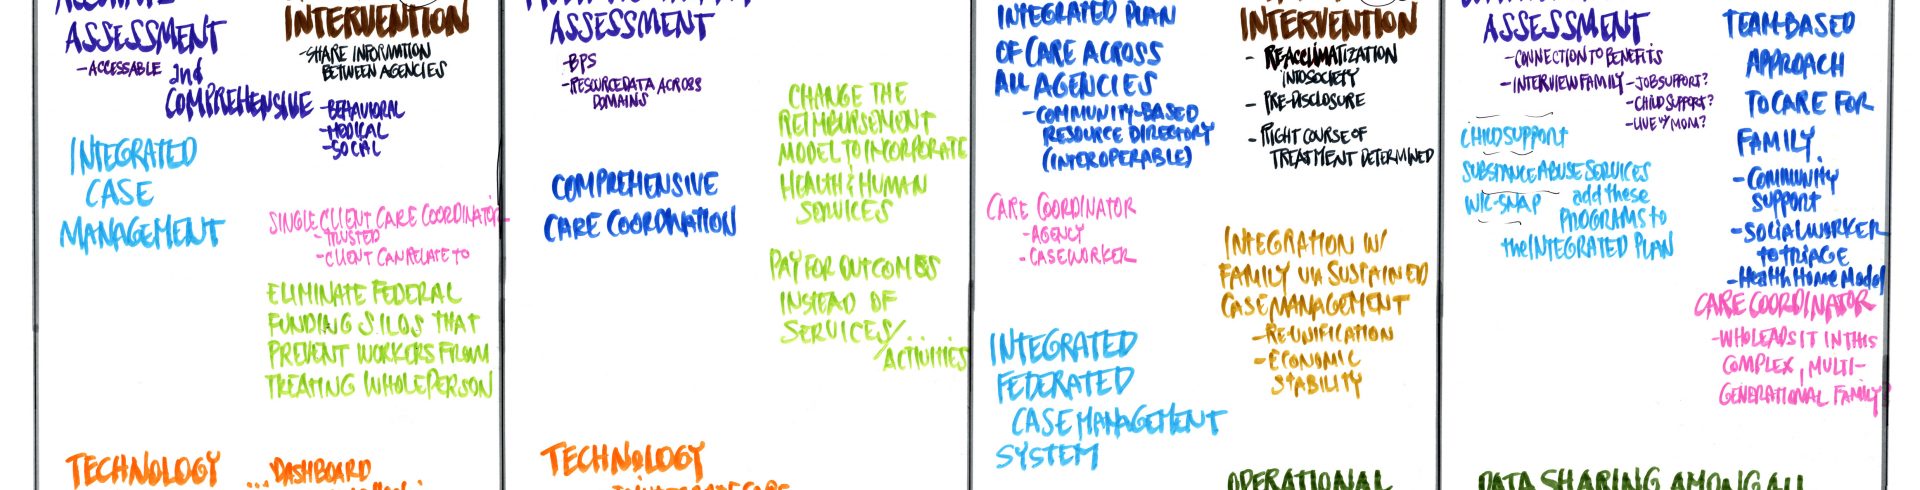 ASSESSMENT
-ACCESSABLE and
COMPREHENSIVE
INTEGRATED
CASE
MANAGEMENT
TECHNOLOGY
INTERVENTION
-SHARE INFORMATION
BETWEEN AGENCIES
-BEHAVIORAL
-MEDICAL
-SOCIAL
SINGLE CLIENT CARE COORDINATOR
-TRUSTED
-CLIENT CAN RELATE TO
ELIMINATE FEDERAL
FUNDING SILOS THAT
PREVENT WORKERS FROM
TREATING WHOLE PERSON
... DASHBOARD
ASSESSMENT
-BPS
-RESOURCE DATA ACROSS
DOMAINS
COMPREHENSIVE
CARE COORDINATION
TECHNOLOGY
CHANGE THE
REIMBURSEMENT
MODEL TO INCORPORATE
HEALTH & HUMAN
SERVICES
PAY FOR OUTCOMES
INSTEAD OF
SERVICES/
ACTIVITIES
INTEGRATED PLAN
OF CARE ACROSS
ALL AGENCIES
-COMMUNITY-BASED
RESOURCE DIRECTORY
(INTEROPERABLE)
CARE COORDINATOR
-AGENCY
-CASEWORKER
INTEGRATED
FEDERATED
CASE MANAGEMENT
SYSTEM
INTERVENTION
- REACCLIMATIZATION
INTO SOCIETY
- PRE-DISCLOSURE
- RIGHT COURSE OF
TREATMENT DETERMINED
INTEGRATION W/
FAMILY VIA SUSTAINED
CASE MANAGEMENT
-RE-UNIFICATION
-ECONOMIC
STABILITY
OPERATIONAL
ASSESSMENT
-CONNECTION TO BENEFITS
-INTERVIEW FAMILY -JOB SUPPORT?
-CHILD SUPPORT?
-LIVE W/ MOM?
CHILD SUPPORT
SUBSTANCE ABUSE SERVICES
WIC-SNAP add these
PROGRAMS to
the INTEGRATED PLAN
DATA SHARING AMONG ALL
TEAM-BASED
APPROACH
TO CARE FOR
FAMILY
-COMMUNITY
SUPPORT
-SOCIAL WORKER
TO TRIAGE
-Health Home Model
CARE COORDINATOR
-WHO LEADS IT IN THIS
COMPLEX, MULTI-
GENERATIONAL FAMILY?